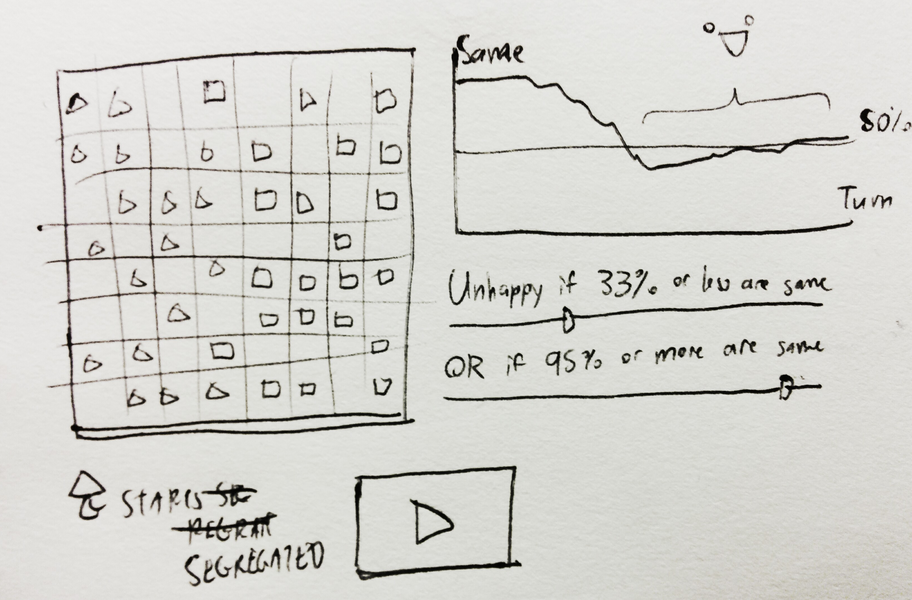 Same
80%
Turn
Unhappy if 33% or less are same
OR if 95% or more are same
STARTS SE
REGRAT
SEGREGATED